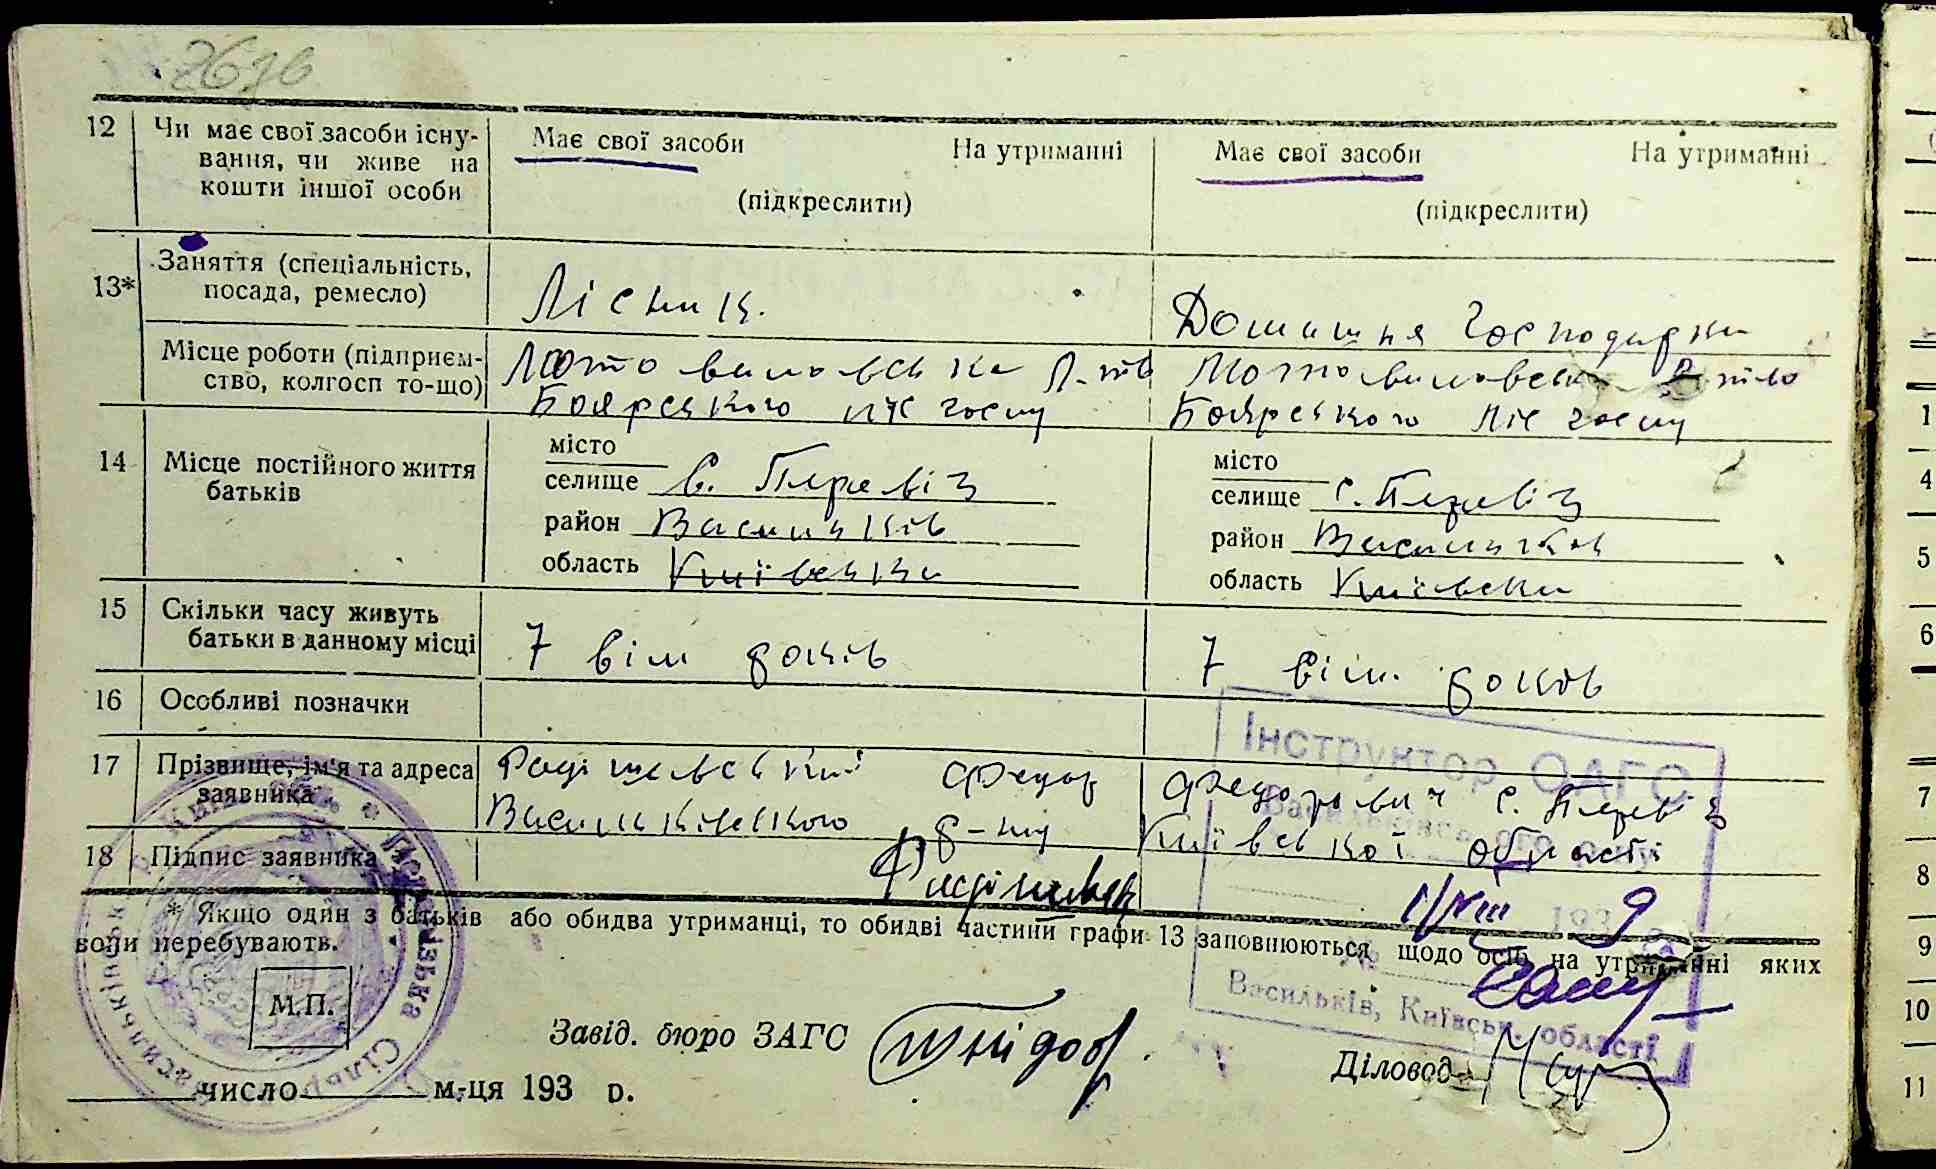 12 Чи має свої засоби існу-
вання, чи живе на
кошти іншої особи
Має свої засоби На утриманні
(підкреслити)
Має свої засоби На утриманні
(підкреслити)
13* Заняття (спеціальність,
посада, ремесло)
Лісник.
Домашня Господарка
Місце роботи (підприєм-
ство, колгосп то-що)
Мотовиловська Л-тв
Боярського лісгоспу
Мотовиловська
Боярського лісгоспу
14 Місце постійного життя
батьків
місто
селище с. Перевіз
район Васильків
область Київська
місто
селище с. Перевіз
район Васильков
область Київська
15 Скільки часу живуть
батьки в данному місці
7 сім років
7 сім років
16 Особливі позначки
17 Прізвище, ім'я та адреса
заявника
Федор Федорович с. Перевіз
Васильківського р-ну Київської області
18 Підпис заявника
* Якщо один з батьків або обидва утриманці, то обидві частини графи 13 заповнюються щодо осіб на утриманні яких
вони перебувають.
М.П.
Завід. бюро ЗАГС
Діловод
число м-ця 193 р.
Інструктор ОАГС
193 9
Васильків, Київськ. області
1
4
5
6
7
8
9
10
11